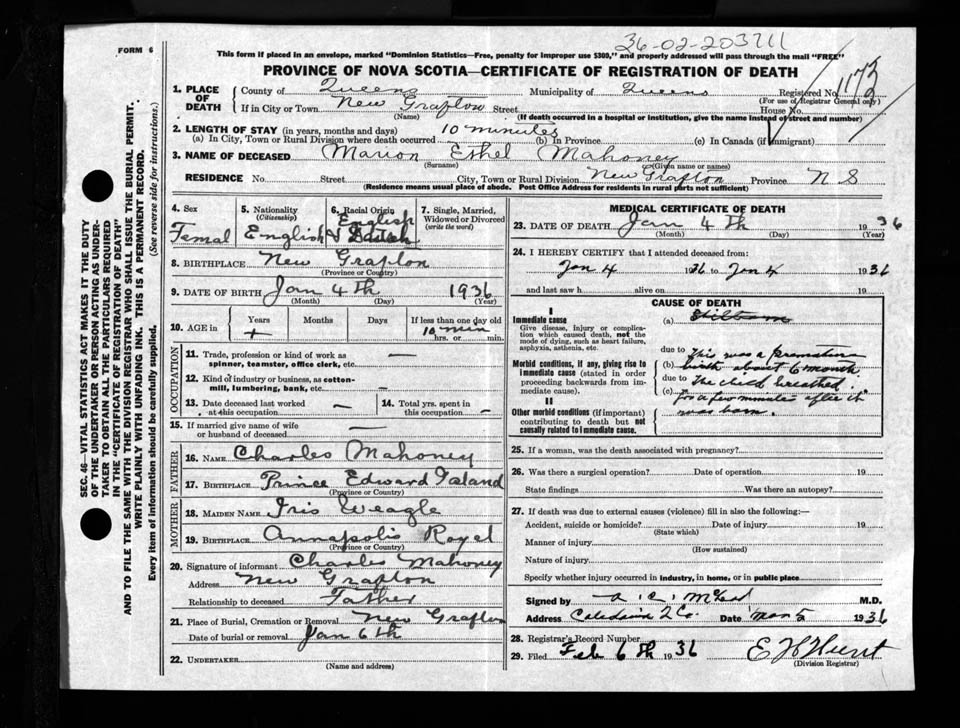 36-02-203711
FORM 6
This form if placed in an envelope, marked "Dominion Statistics—Free, penalty for improper use $300," and properly addressed will pass through the mail "FREE"
PROVINCE OF NOVA SCOTIA—CERTIFICATE OF REGISTRATION OF DEATH
1. PLACE OF DEATH
County of Queens Municipality of Queens Registered No.
(For use of Registrar General only)
If in City or Town New Grafton Street House No.
(Name) (If death occurred in a hospital or institution, give the name instead of street and number)
2. LENGTH OF STAY (in years, months and days) 10 minutes
(a) In City, Town or Rural Division where death occurred (b) In Province (c) In Canada (if immigrant)
3. NAME OF DECEASED Marion Ethel Mahoney
(Surname) (Given name or names)
RESIDENCE No. Street City, Town or Rural Division New Grafton Province N S
(Residence means usual place of abode. Post Office Address for residents in rural parts not sufficient)
SEC. 46—VITAL STATISTICS ACT MAKES IT THE DUTY
OF THE UNDERTAKER OR PERSON ACTING AS UNDER-
TAKER TO OBTAIN ALL THE PARTICULARS REQUIRED
IN THE "CERTIFICATE OF REGISTRATION OF DEATH"
AND TO FILE THE SAME WITH THE DIVISION REGISTRAR WHO SHALL ISSUE THE BURIAL PERMIT.
WRITE PLAINLY WITH UNFADING INK. THIS IS A PERMANENT RECORD.
Every item of information should be carefully supplied. (See reverse side for instructions.)
4. Sex
Femal
5. Nationality
(Citizenship)
English
6. Racial Origin
English
&
7. Single, Married,
Widowed or Divorced
(write the word)
8. BIRTHPLACE New Grafton
(Province or Country)
9. DATE OF BIRTH Jan 4th 1936
(Month) (Day) (Year)
10. AGE in
Years Months Days If less than one day old
10 min
hrs. or min.
OCCUPATION
11. Trade, profession or kind of work as —
spinner, teamster, office clerk, etc.
12. Kind of industry or business, as cotton-
mill, lumbering, bank, etc. —
13. Date deceased last worked
at this occupation —
14. Total yrs. spent in
this occupation —
15. If married give name of wife
or husband of deceased —
FATHER
16. NAME Charles Mahoney
17. BIRTHPLACE Prince Edward Island
(Province or Country)
MOTHER
18. MAIDEN NAME Iris Weagle
19. BIRTHPLACE Annapolis Royel
(Province or Country)
20. Signature of informant Charles Mahoney
Address New Grafton
Relationship to deceased Father
21. Place of Burial, Cremation or Removal New Grafton
Date of burial or removal Jan 6th
22. UNDERTAKER
(Name and address)
MEDICAL CERTIFICATE OF DEATH
23. DATE OF DEATH Jan 4th 1936
(Month) (Day) (Year)
24. I HEREBY CERTIFY that I attended deceased from:
Jan 4 1936 to Jan 4 1936
and last saw h alive on 19
CAUSE OF DEATH
I
Immediate cause
Give disease, injury or complica-
tion which caused death, not the
mode of dying, such as heart failure,
asphyxia, asthenia, etc.
(a) Stillborn
due to This was a premature
Morbid conditions, if any, giving rise to
immediate cause (stated in order
proceeding backwards from im-
mediate cause).
(b) birth about 6 month
due to The child breathed
(c) for a few minutes after it
was born.
II
Other morbid conditions (if important)
contributing to death but not
causally related to immediate cause.
25. If a woman, was the death associated with pregnancy?
26. Was there a surgical operation? Date of operation 19
State findings Was there an autopsy?
27. If death was due to external causes (violence) fill in also the following:—
Accident, suicide or homicide? Date of injury 19
(State which)
Manner of injury
(How sustained)
Nature of injury
Specify whether injury occurred in industry, in home, or in public place
Signed by A. C. M.D.
Address Date 1936
28. Registrar's Record Number
29. Filed Feb 6th 1936
(Division Registrar)